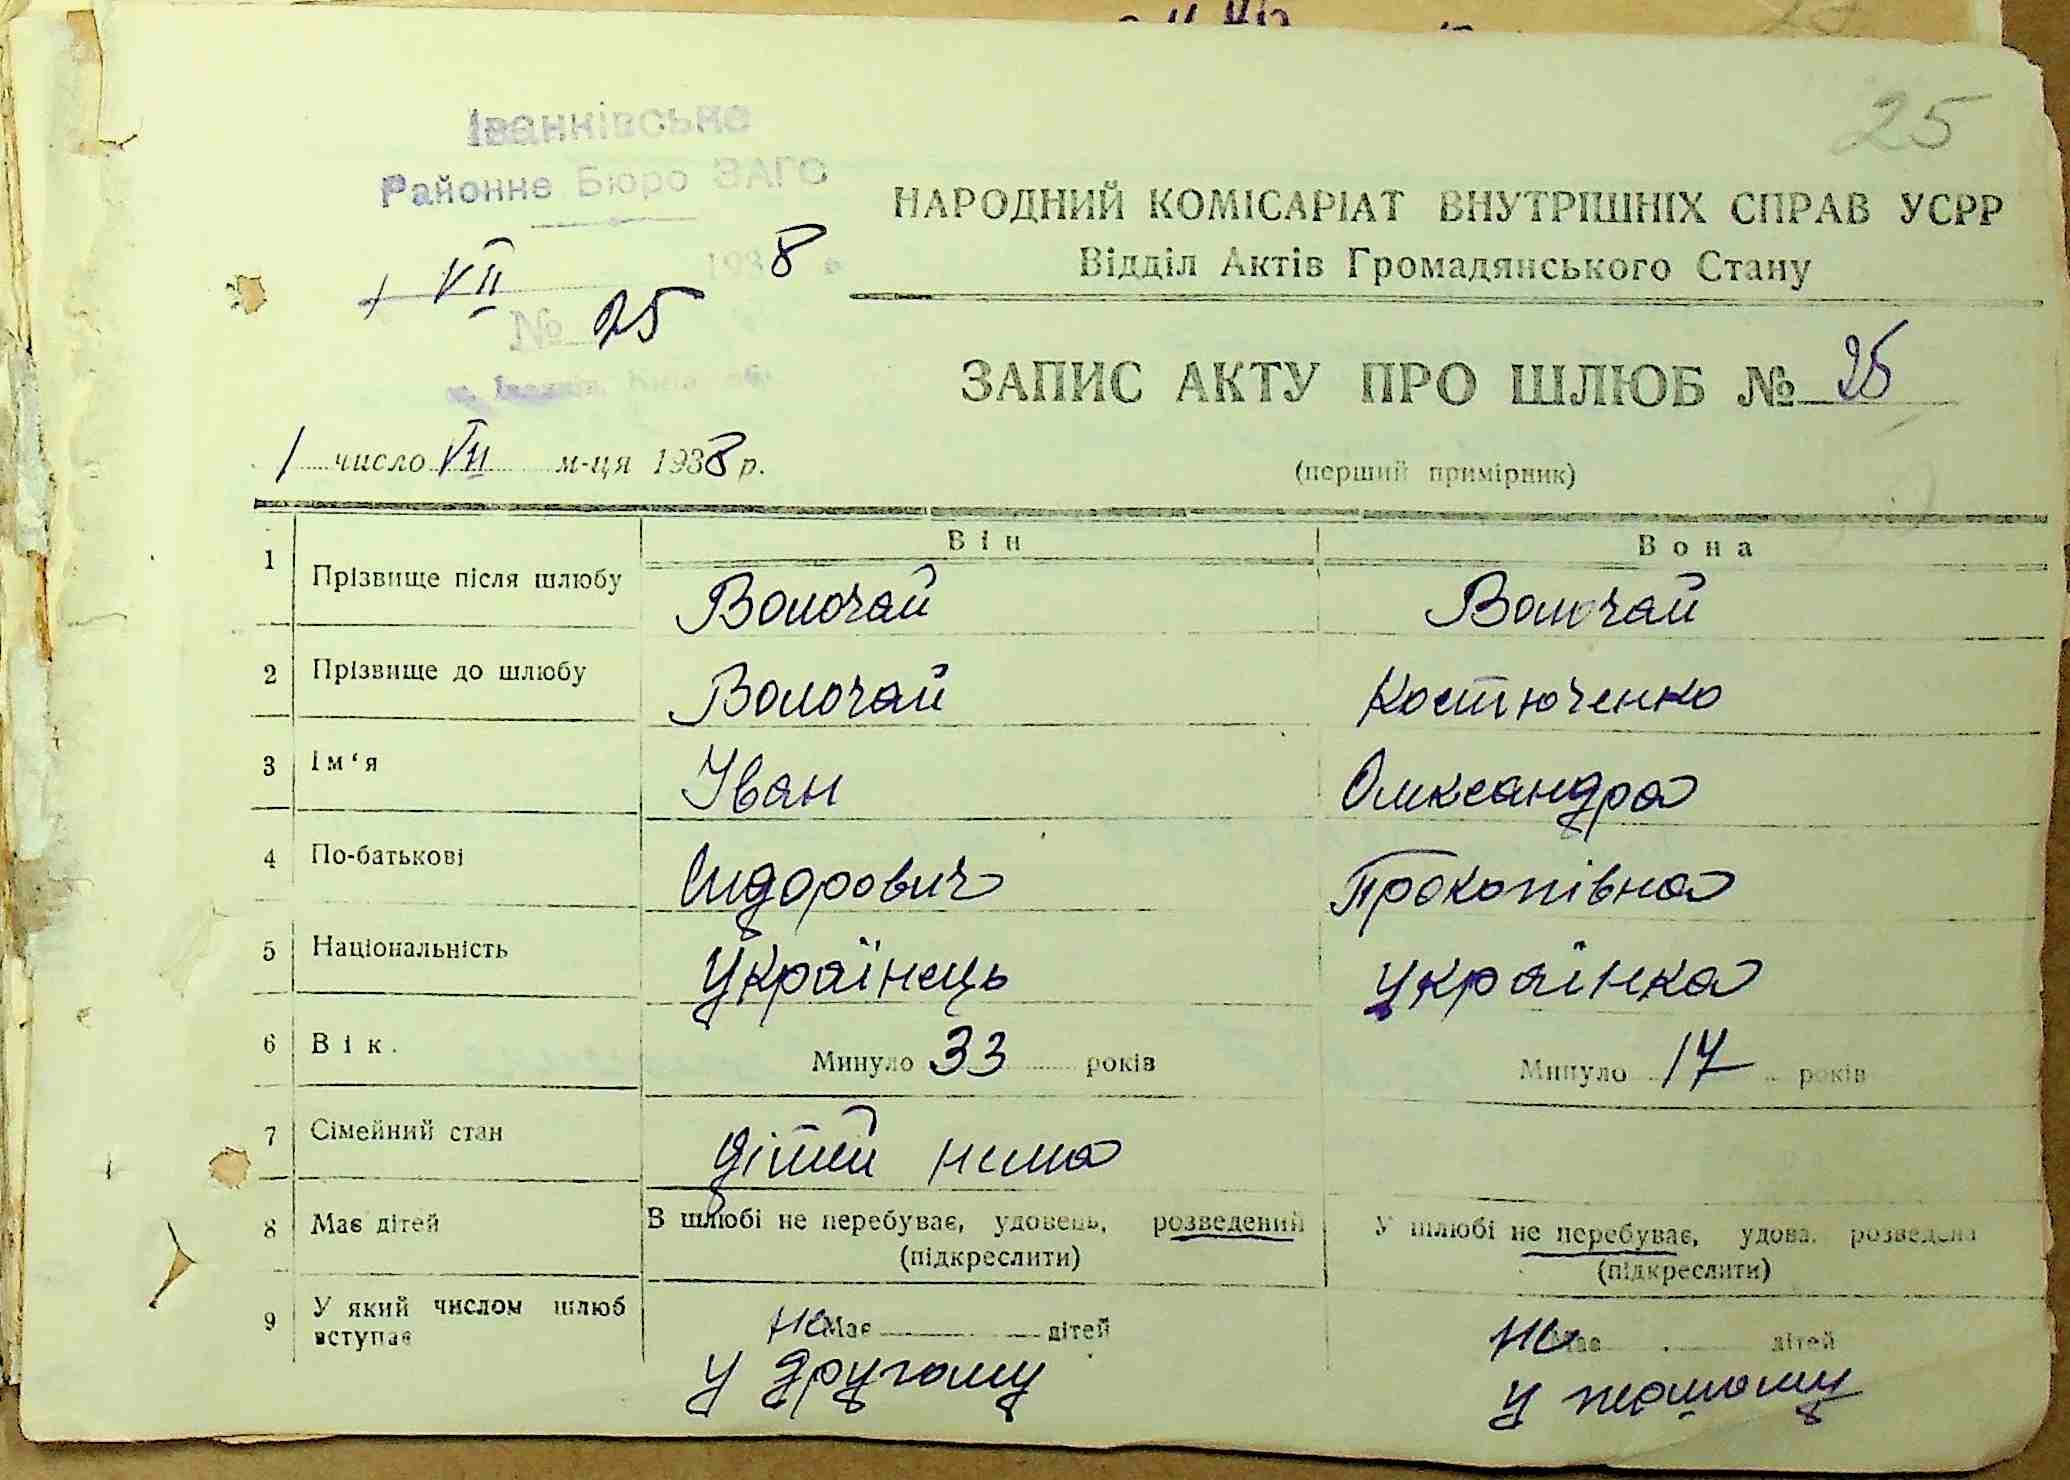 25
Іванківське
Районне Бюро ЗАГС
1 VII 1938 р
№ 25
НАРОДНИЙ КОМІСАРІАТ ВНУТРІШНІХ СПРАВ УСРР
Відділ Актів Громадянського Стану
ЗАПИС АКТУ ПРО ШЛЮБ № 25
1 число VII м-ця 1938 р.
(перший примірник)
Він Вона
1 Прізвище після шлюбу Волочай Волочай
2 Прізвище до шлюбу Волочай Костюченко
3 Ім‘я Іван Олександра
4 По-батькові Сидорович Прокопівна
5 Національність Українець Українка
6 Вік. Минуло 33 років Минуло 17 років
7 Сімейний стан дітей нема
8 Має дітей В шлюбі не перебуває, удовець, розведений У шлюбі не перебуває, удова, розведена
(підкреслити) (підкреслити)
9 У який числом шлюб вступає не Має дітей не Має дітей
у другому у першому